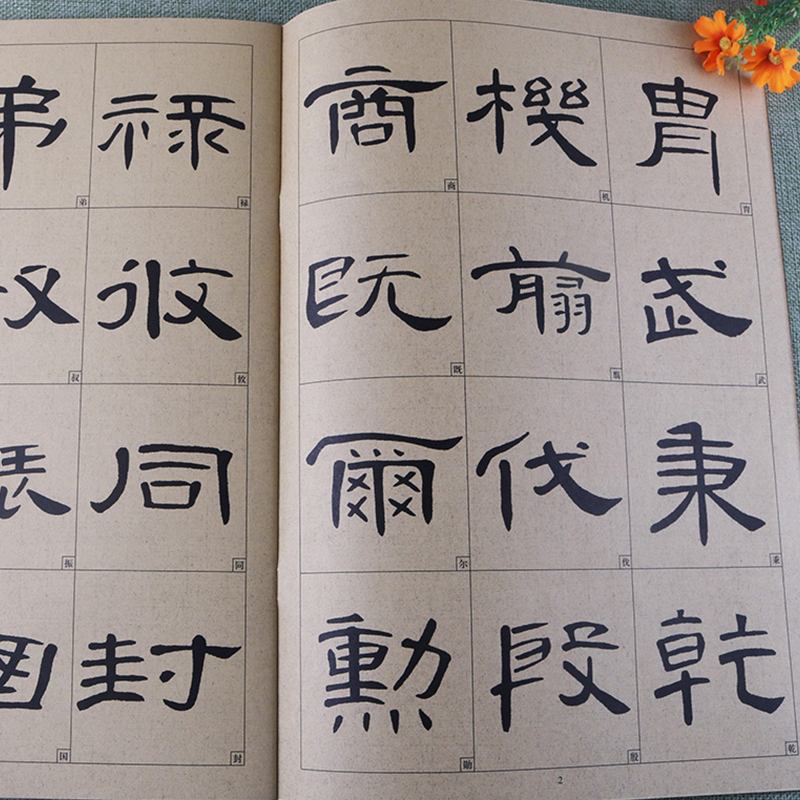 胄 胄
武 武
秉 秉
乾 乾
機 机
翦 翦
伐 伐
殷 殷
商 商
既 既
爾 尔
勳 勋
2
祿 禄
攸 攸
同 同
封 封
弟 弟
叔
振
国